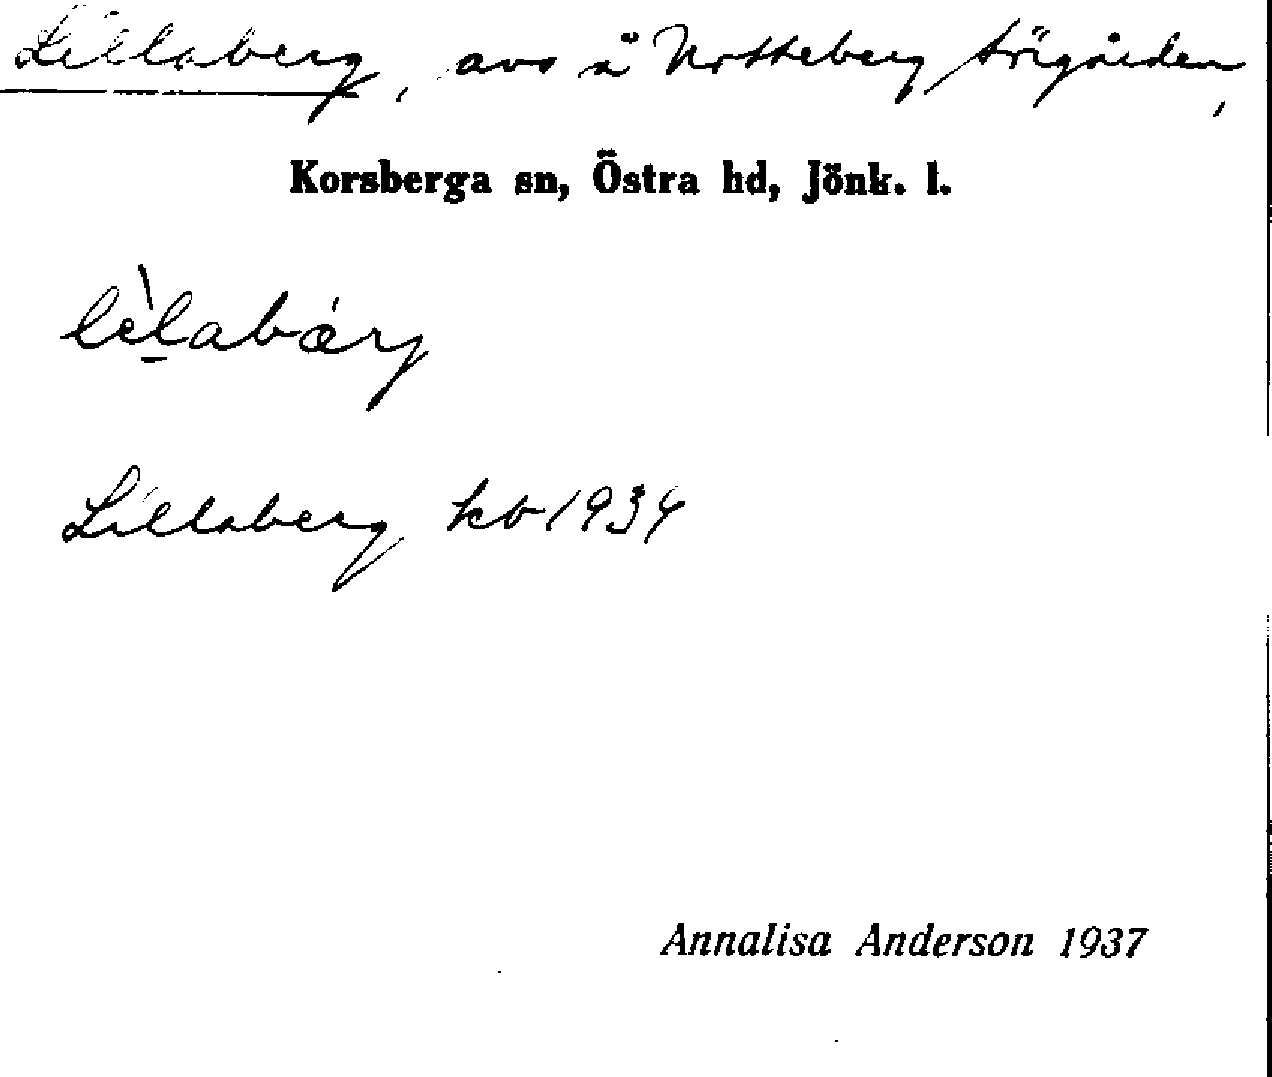 Lillaberg, avs å Notteberg Sörgården,
Korsberga sn, Östra hd, Jönk. l.
lèlabárj
Lillaberg kb 1934
Annalisa Anderson 1937